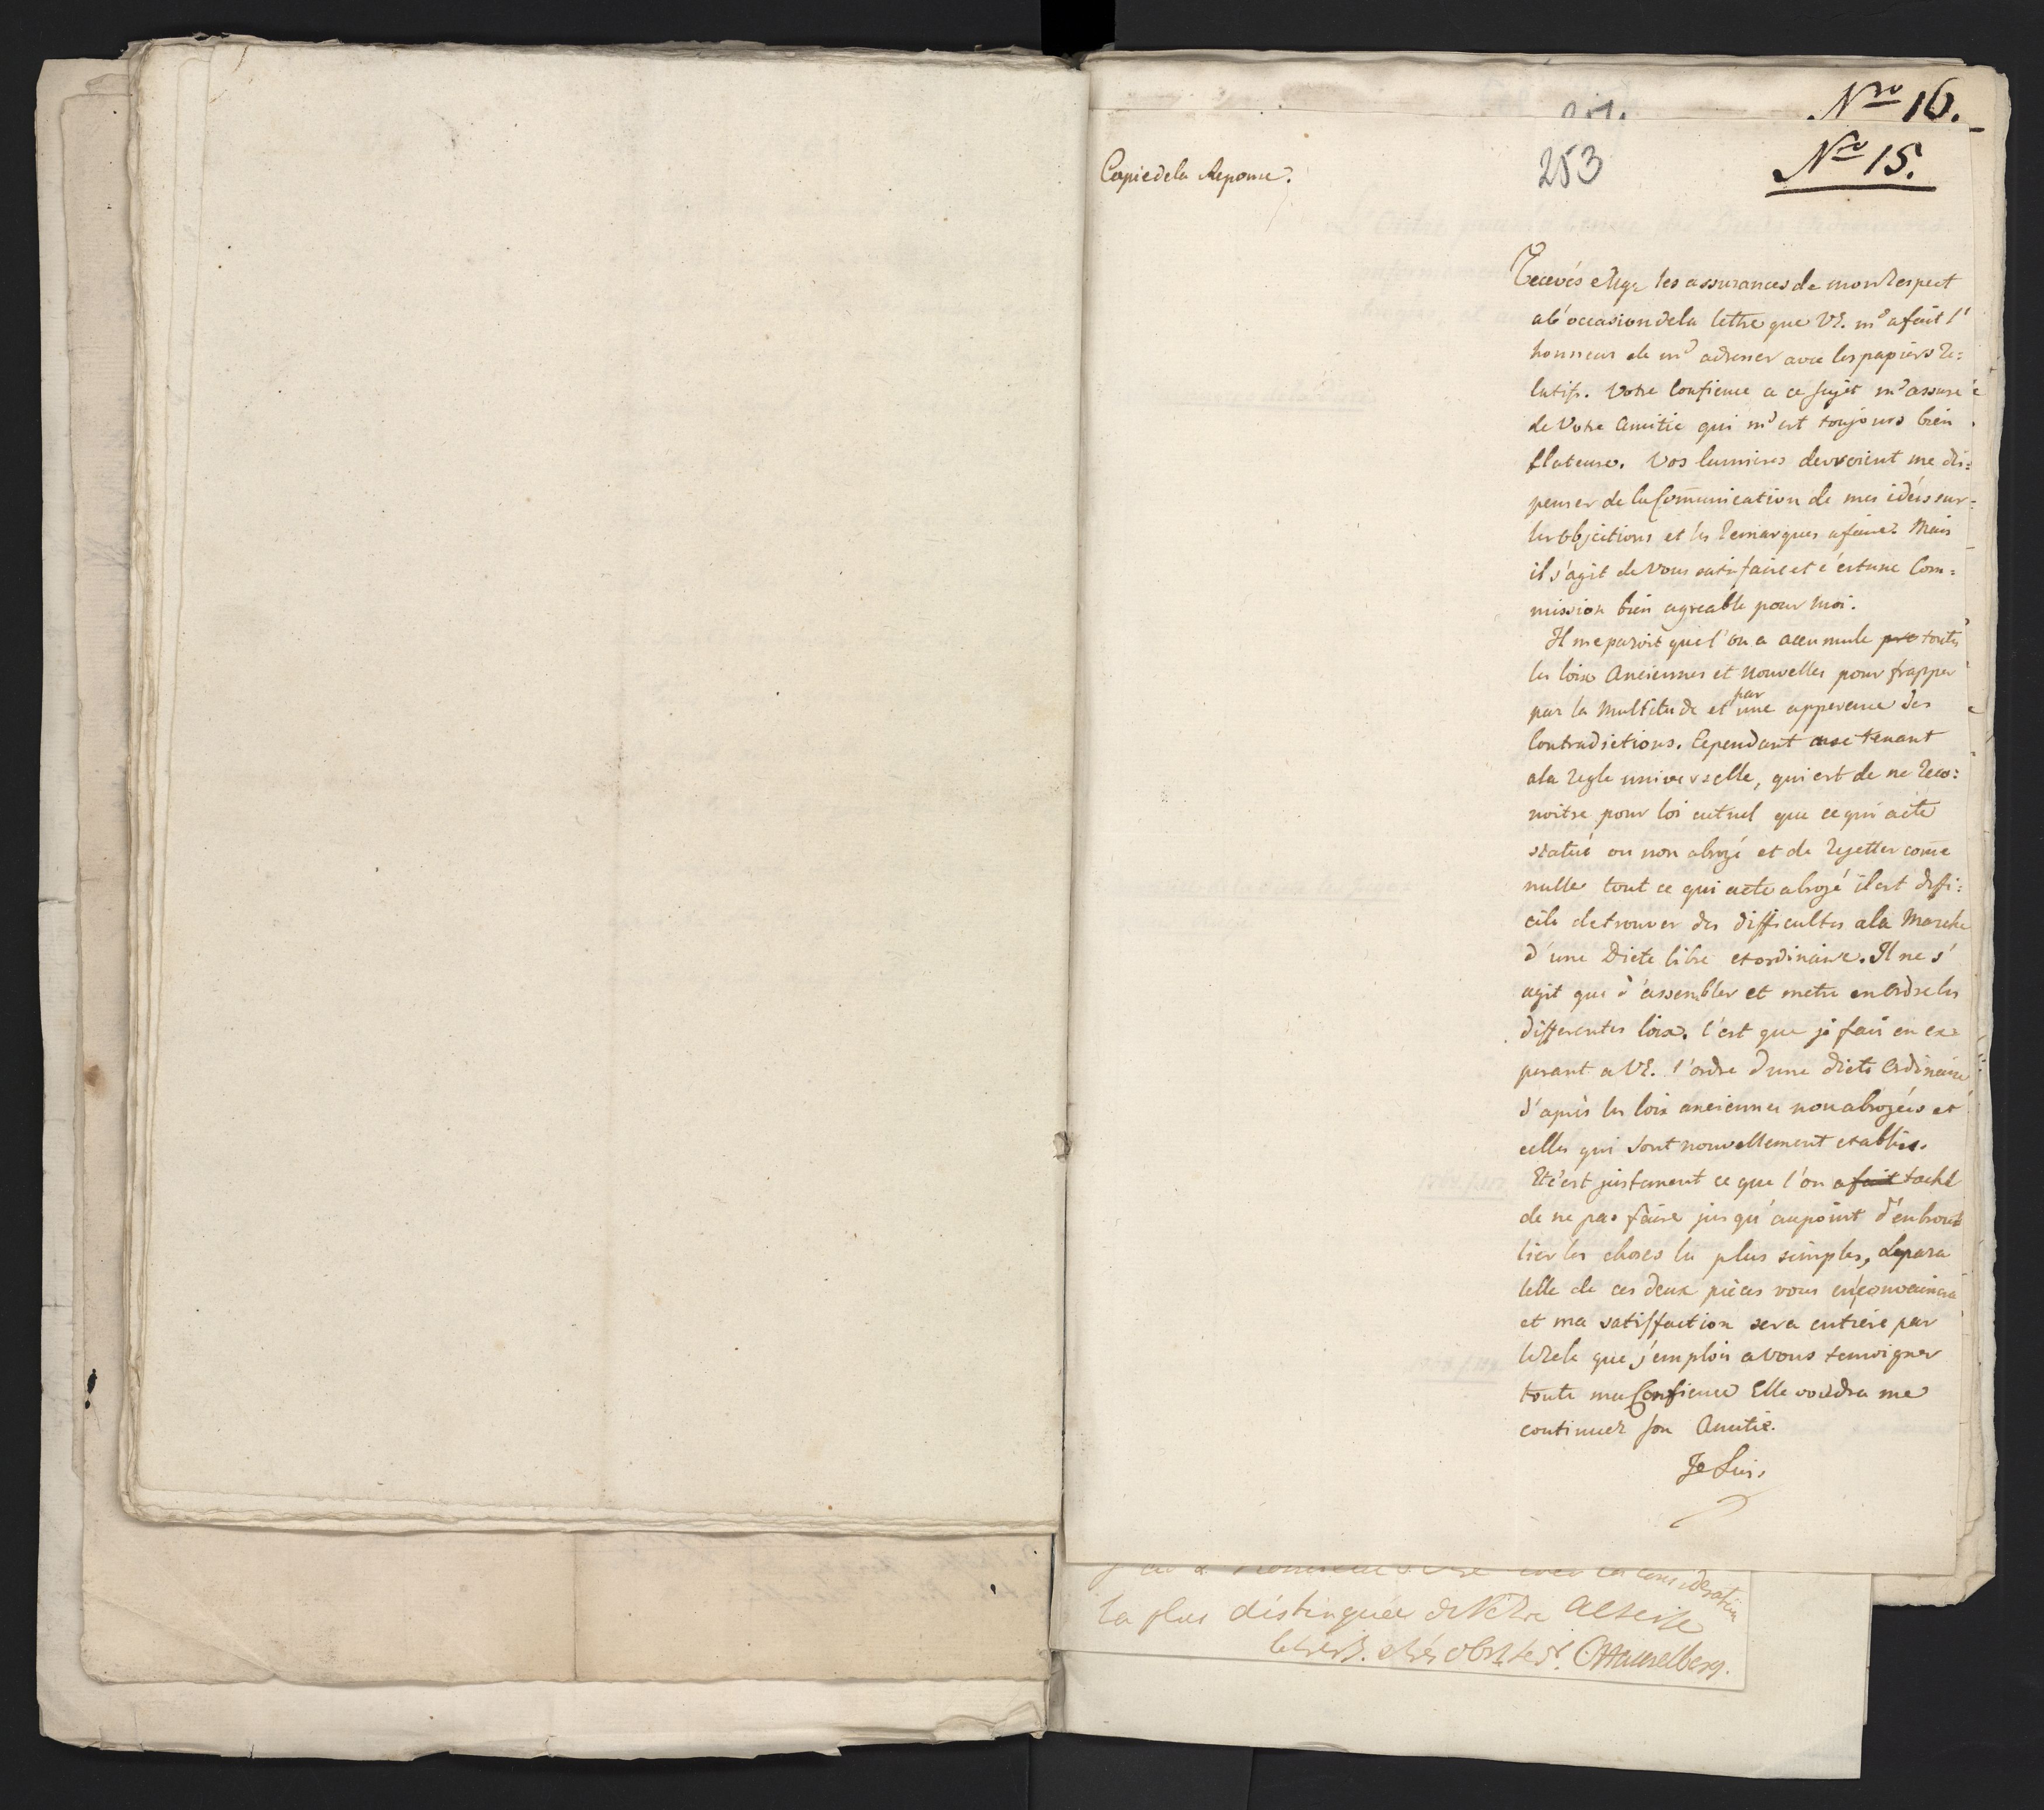 Nro 16.
257.
Nro 15.
253
Copie de la Reponse.
Recevés Mgr les assurances de mon Respect
a l'occasion de la lettre que VE. m'a fait l'
honneur de m'adresser avec les papiers re=
latifs. Votre Confience a ce sujet m'assure
de Votre Amitie qui m'est toujours bien
flateuse. Vos lumieres devroient me dis=
penser de la Com̄unication de mes idées sur
les objections et les Remarques a faire. Mais
il s'agit de Vous satisfaire et c'est une Com=
mission bien agreable pour moi.
Il me paroit que l'on a accumule pre toutes
les loix Anciennes et Nouvelles pour frapper
par la Multitude et par une apparence des
Contradictions. Cependant en se tenant
a la regle universelle, qui est de ne reco=
noitre pour loi actuel que ce qui a eté
statué ou non abrogé et de rejetter com̄e
nulle tout ce qui a eté abrogé il est diffi=
cile de trouver des difficultes a la Marche
d'une Diete libre et ordinaire. Il ne s'
agit que d'assembler et metre en Ordre les
differentes loix. C'est que je fais en ex
posant a VE. l'ordre d'une diete Ordinaire
d'après les loix anciennes non abrogées et
celles qui sont nouvellement etablies.
Et c'est justement ce que l'on a fait taché
de ne pas faire jusqu'au point d'enbrouil
lier les choses les plus simples, Le para
lelle de ces deux pièces vous en convaincra
et ma satisffaction sera entiere par
le Zele que j'emplois a vous temoigner
toute ma Confience Elle voudra me
continuer son Amitié.
Je Suis
la plus distinguée de Votre Altesse
le très h. et très obst. ser. CHauselberg.